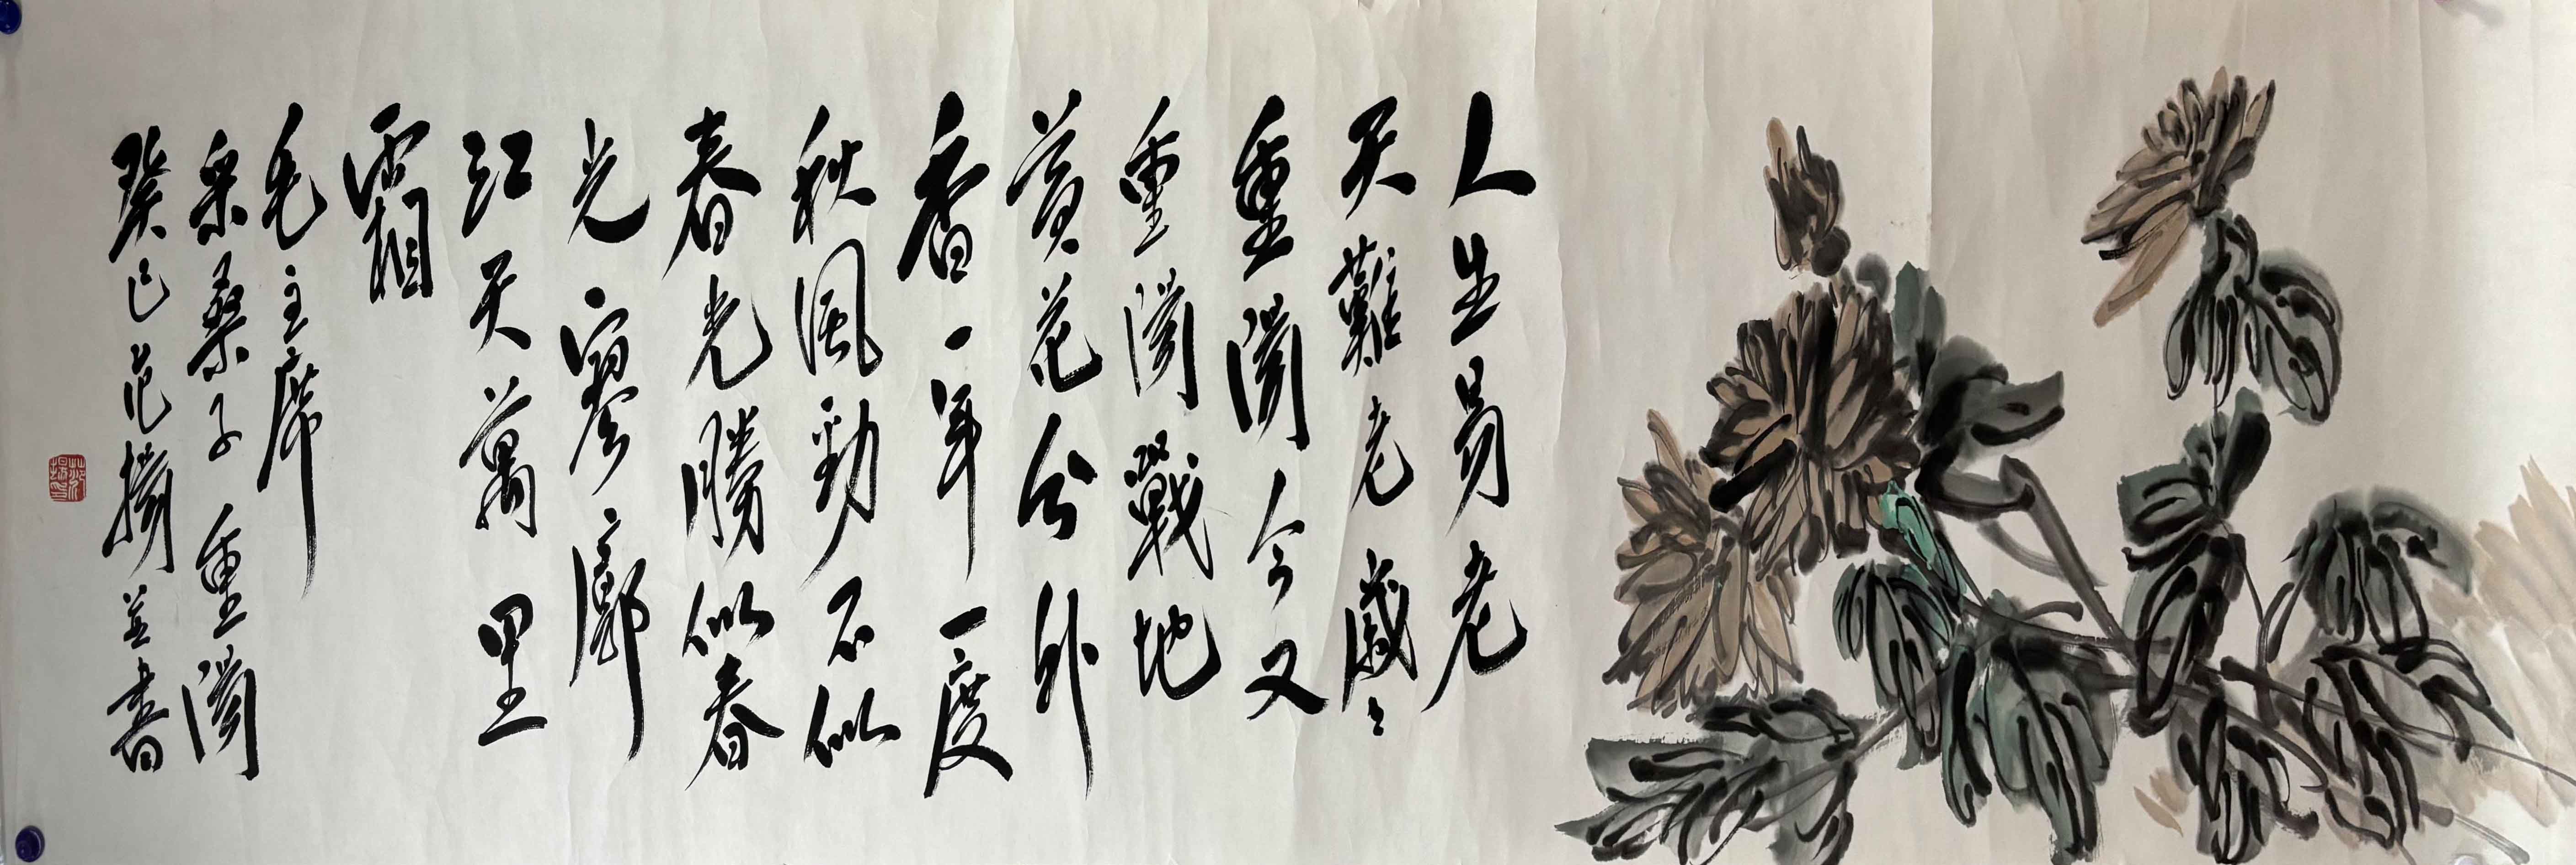 人生易老
天難老歲々
重陽今又
重陽戰地
黃花分外
香一年一度
秋風勁不似
春光勝似春
光寥廓
江天萬里
霜
毛主席
采桑子重陽
癸巳范揚並書
范揚印